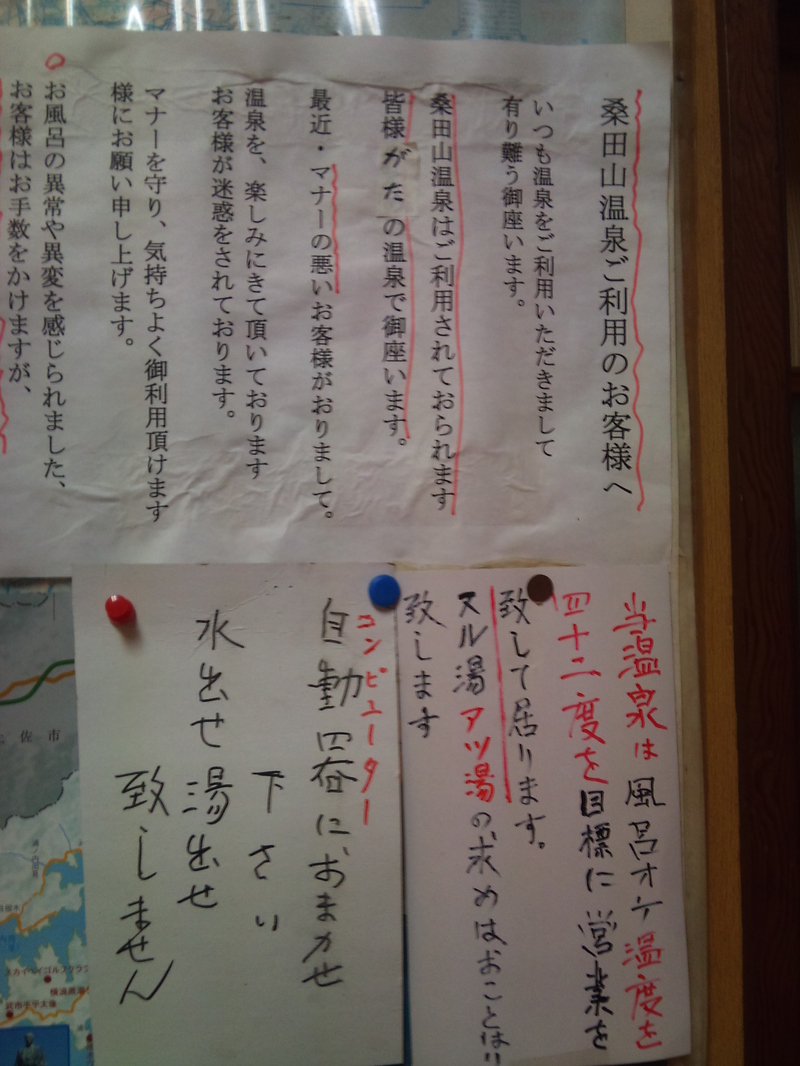 桑田山温泉ご利用のお客様へ
いつも温泉をご利用いただきまして
有り難う御座います。
桑田山温泉はご利用されておられます
皆様がたの温泉で御座います。
最近・マナーの悪いお客様がおりまして。
温泉を、楽しみにきて頂いております
お客様が迷惑をされております。
マナーを守り、気持ちよく御利用頂けます
様にお願い申し上げます。
お風呂の異常や異変を感じられました、
お客様はお手数をかけますが、
当温泉は風呂オケ温度を
四十二度を目標に営業を
致して居ります。
ヌル湯アツ湯の求めはおことはり
致します
コンピューター
自動
におまかせ
下さい
水出せ湯出せ
致しません
佐市
スカイベイゴルフクラブ